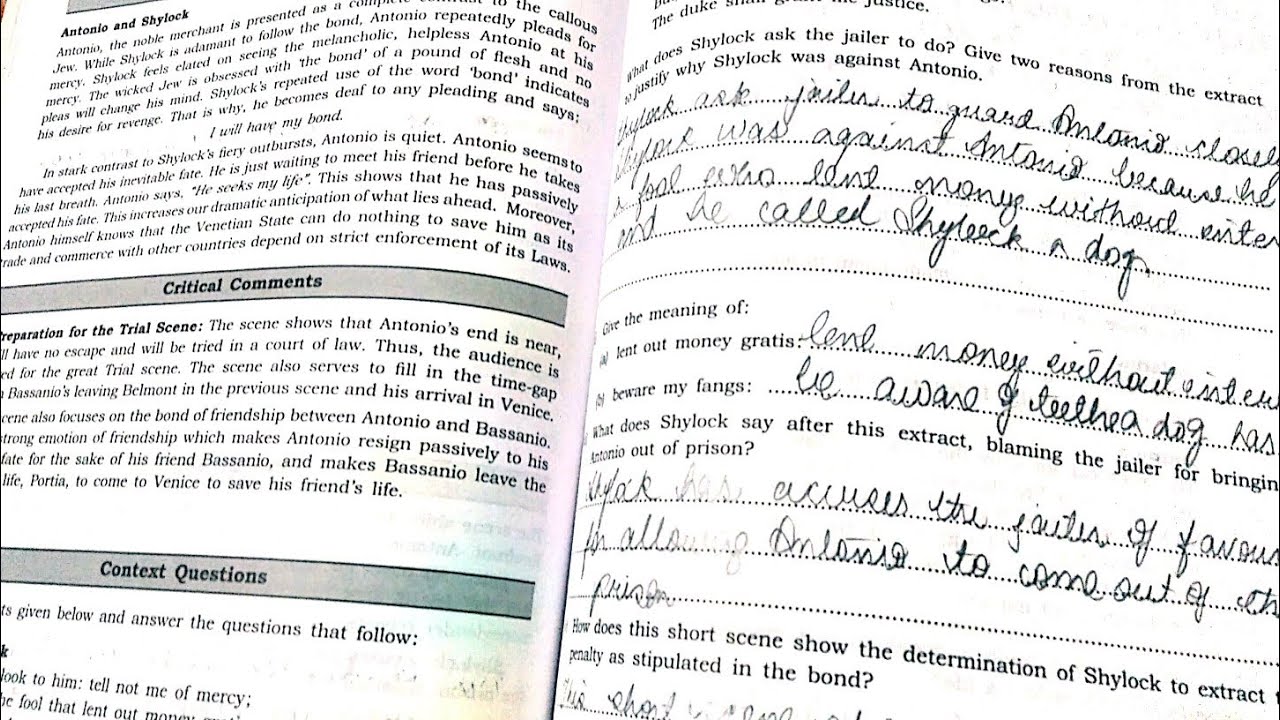 Antonio and Shylock
Antonio, the noble merchant is presented as a complete contrast to the callous
Jew. While Shylock is adamant to follow the bond, Antonio repeatedly pleads for
mercy. Shylock feels elated on seeing the melancholic, helpless Antonio at his
mercy. The wicked Jew is obsessed with 'the bond' of a pound of flesh and no
pleas will change his mind. Shylock's repeated use of the word 'bond' indicates
his desire for revenge. That is why, he becomes deaf to any pleading and says:
I will have my bond.
In stark contrast to Shylock's fiery outbursts, Antonio is quiet. Antonio seems to
have accepted his inevitable fate. He is just waiting to meet his friend before he takes
his last breath. Antonio says, "He seeks my life". This shows that he has passively
accepted his fate. This increases our dramatic anticipation of what lies ahead. Moreover,
Antonio himself knows that the Venetian State can do nothing to save him as its
rade and commerce with other countries depend on strict enforcement of its Laws.
Critical Comments
reparation for the Trial Scene: The scene shows that Antonio's end is near,
ll have no escape and will be tried in a court of law. Thus, the audience is
ed for the great Trial scene. The scene also serves to fill in the time-gap
Bassanio's leaving Belmont in the previous scene and his arrival in Venice.
cene also focuses on the bond of friendship between Antonio and Bassanio.
trong emotion of friendship which makes Antonio resign passively to his
fate for the sake of his friend Bassanio, and makes Bassanio leave the
life, Portia, to come to Venice to save his friend's life.
Context Questions
ts given below and answer the questions that follow:
k
look to him: tell not me of mercy;
he fool that lent out money
The duke justice.
What does Shylock ask the jailer to do? Give two reasons from the extract
to justify why Shylock was against Antonio.
Shylock ask jailer to guard Antonio closely
Shylock was against Antonio because he
fool who lend money without inter
and he called Shyleock a dog
Give the meaning of:
(a) lent out money gratis: lend money without inter
(b) beware my fangs: be aware of teethea dog has
What does Shylock say after this extract, blaming the jailer for bringin
Antonio out of prison?
Shylock has accuses the jailer of favou
for allowing Antonio to come out of th
prison
How does this short scene show the determination of Shylock to extract
penalty as stipulated in the bond?
This short scene